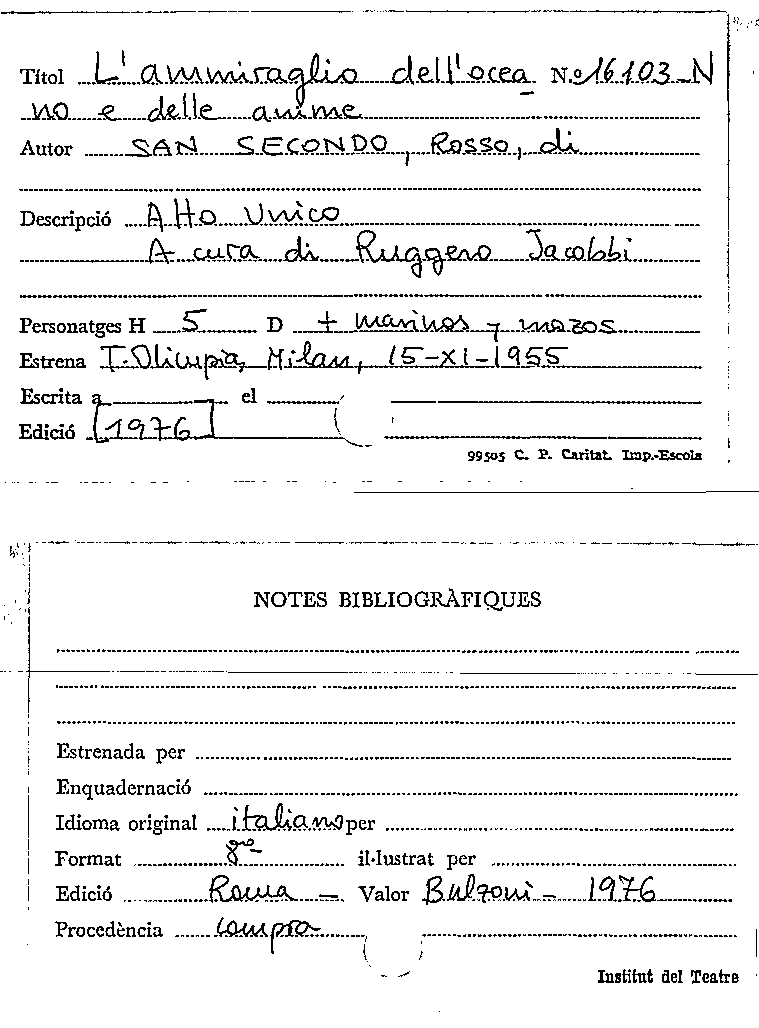 Títol L'ammiraglio dell'ocea N.º 16103-N
no e delle anime
Autor SAN SECONDO, Rosso, di
Descripció Atto Unico
A cura di Ruggero Jacobbi
Personatges H 5 D + marinos y mozos
Estrena T. Olimpia, Milan, 15-XI-1955
Escrita a el
Edició [1976]
99505 C. P. Caritat. Imp.-Escola
NOTES BIBLIOGRÀFIQUES
Estrenada per
Enquadernació
Idioma original italiano per
Format 8º il·lustrat per
Edició Roma - Valor Bulzoni - 1976
Procedència compra
Institut del Teatre